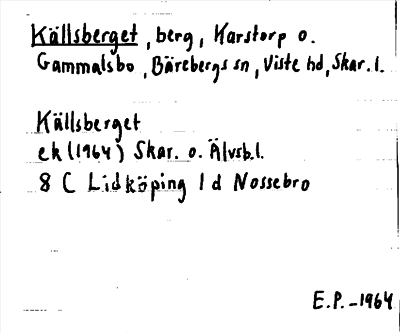 Källsberget, berg, Karstorp o.
Gammalsbo, Bärebergs sn, Viste hd, Skar. l.
Källsberget
ek (1964) Skar. o. Älvsb. l.
8 C Lidköping 1 d Nossebro
E.P. - 1964